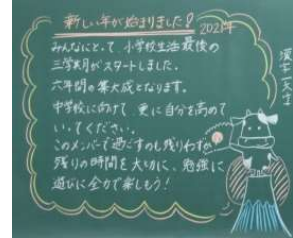 新しい年が始まりました！ 2021年
みんなにとって、小学校生活最後の
三学期がスタートしました。
六年間の集大成となります。
中学校に向けて、更に自分を高めて
いってください。
このメンバーで過ごすのも残りわずか
残りの時間を大切に、勉強に
遊びに全力で楽しもう！